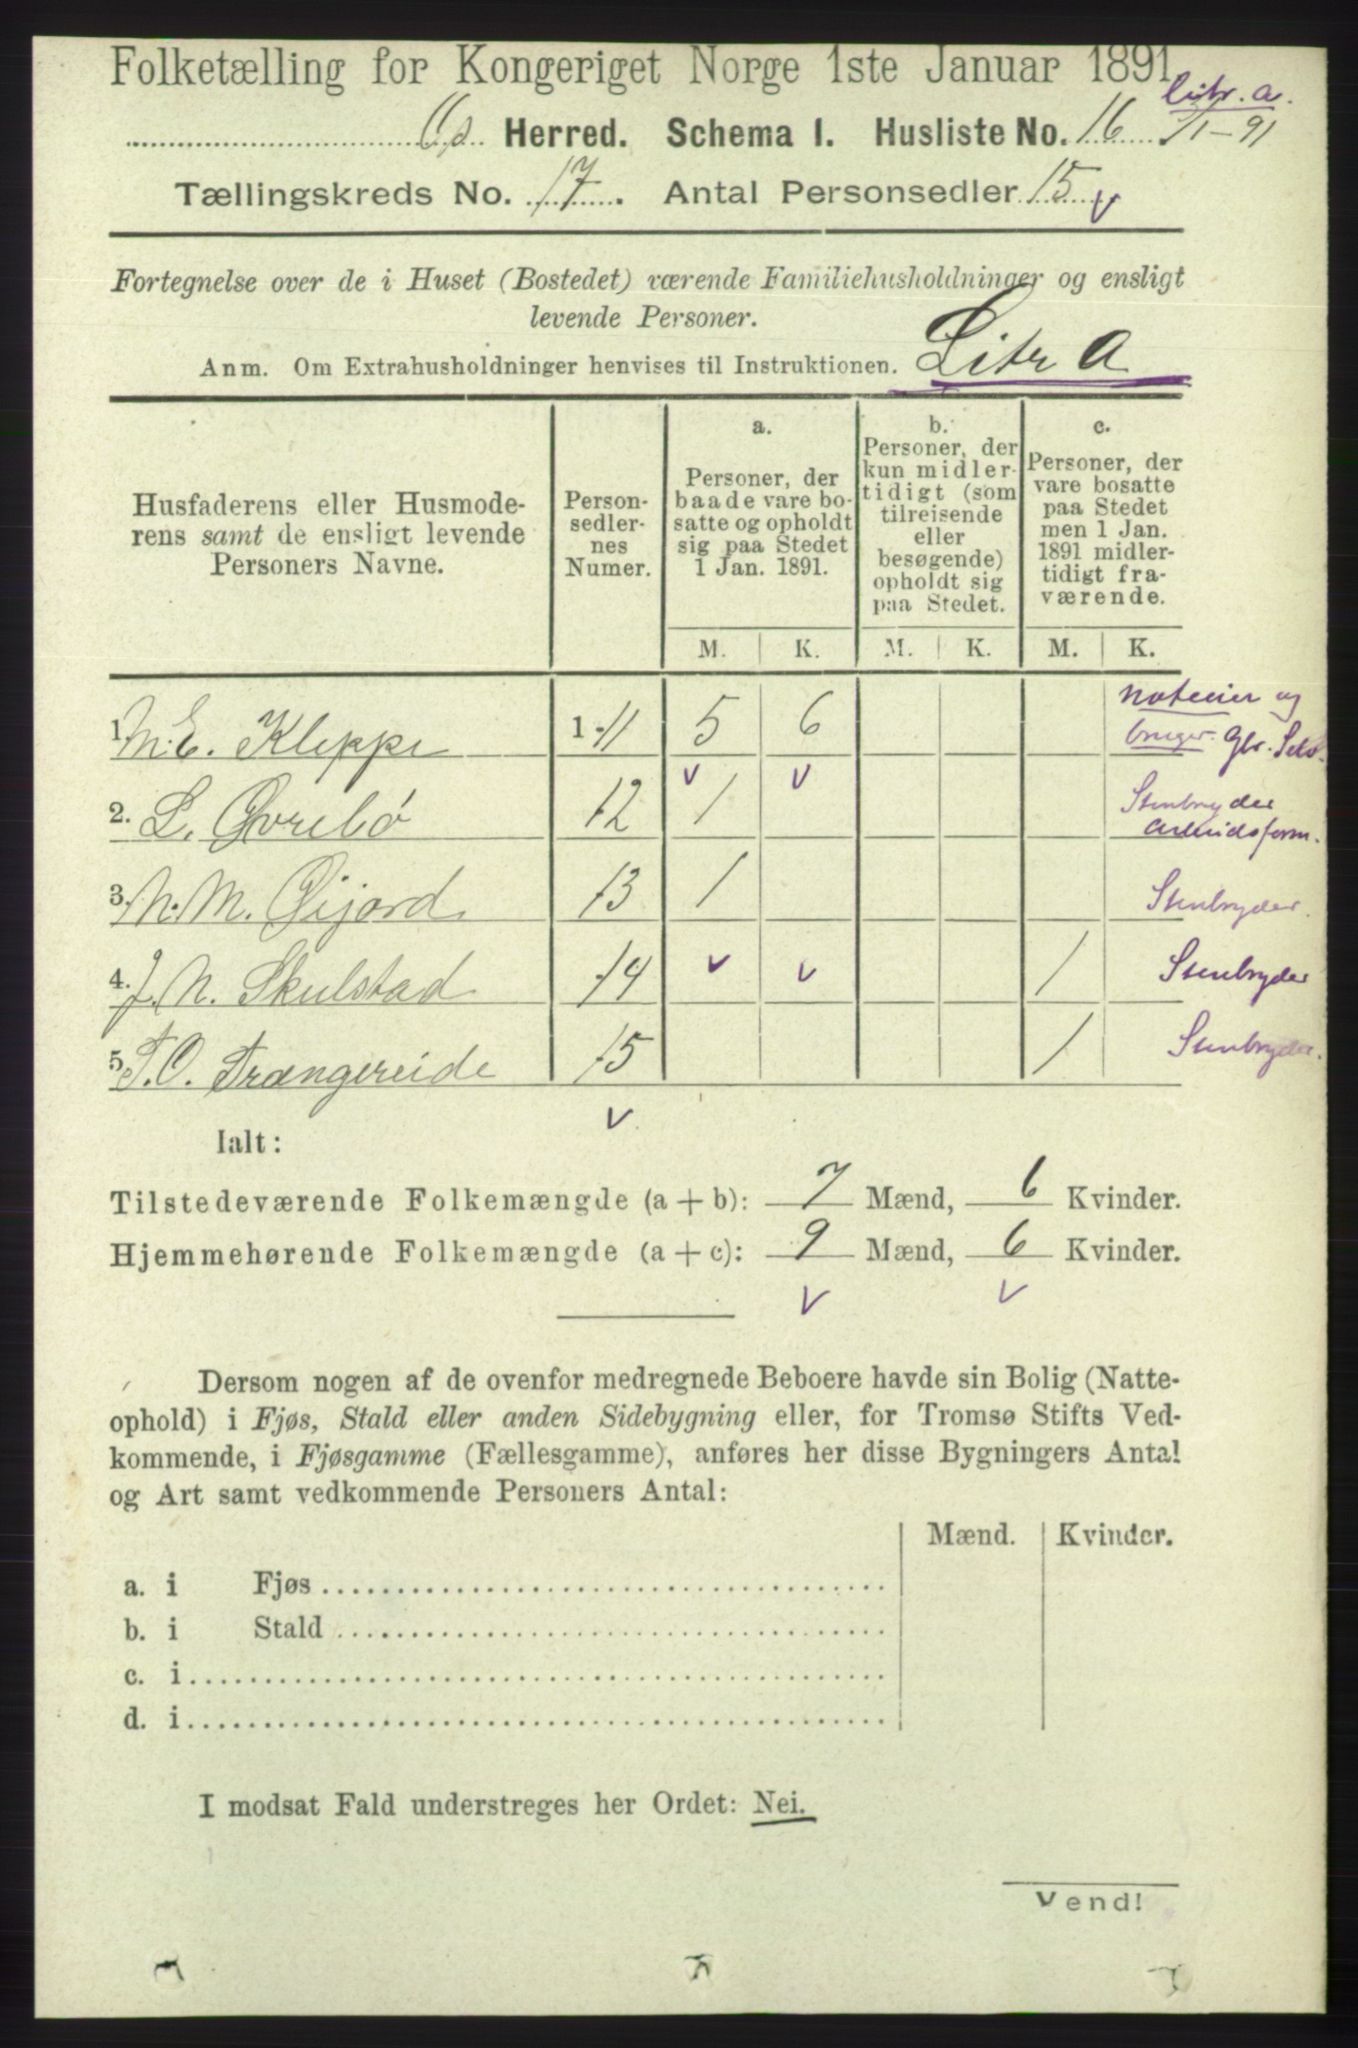 Folketælling for Kongeriget Norge 1ste Januar 1891.
Litr. a.
Os Herred. Schema I. Husliste No. 16 1/1-91
Tællingskreds No. 17. Antal Personsedler 15 v
Fortegnelse over de i Huset (Bostedet) værende Familiehusholdninger og ensligt
levende Personer.
Anm. Om Extrahusholdninger henvises til Instruktionen. Litr A
Husfaderens eller Husmode-
rens samt de ensligt levende
Personers Navne.
Person-
sedler-
nes
Numer.
a.
Personer, der
baade vare bo-
satte og opholdt
sig paa Stedet
1 Jan. 1891.
b.
Personer, der
kun midler-
tidigt (som
tilreisende
eller
besøgende)
opholdt sig
paa Stedet.
c.
Personer, der
vare bosatte
paa Stedet
men 1 Jan.
1891 midler-
tidigt fra-
værende.
M. K. M. K. M. K.
1. M. E. Kleppe 1-11 5 6
Noteier og
bruger Gbr. Selv.
2. L. Øvrebø 12 v 1 v Stenbryder
Arbeidsform.
3. N. M. Øijord 13 1 Stenbryder.
4. J. N. Skulstad 14 v v 1 Stenbryder
5. T. O. Trængereide 15 1 Stenbryder.
v
Ialt:
Tilstedeværende Folkemængde (a + b): 7 Mænd, 6 Kvinder.
Hjemmehørende Folkemængde (a + c): 9 Mænd, 6 Kvinder.
v v
Dersom nogen af de ovenfor medregnede Beboere havde sin Bolig (Natte-
ophold) i Fjøs, Stald eller anden Sidebygning eller, for Tromsø Stifts Ved-
kommende, i Fjøsgamme (Fællesgamme), anføres her disse Bygningers Antal
og Art samt vedkommende Personers Antal:
Mænd. Kvinder.
a. i Fjøs
b. i Stald
c. i
d. i
I modsat Fald understreges her Ordet: Nei.
Vend!